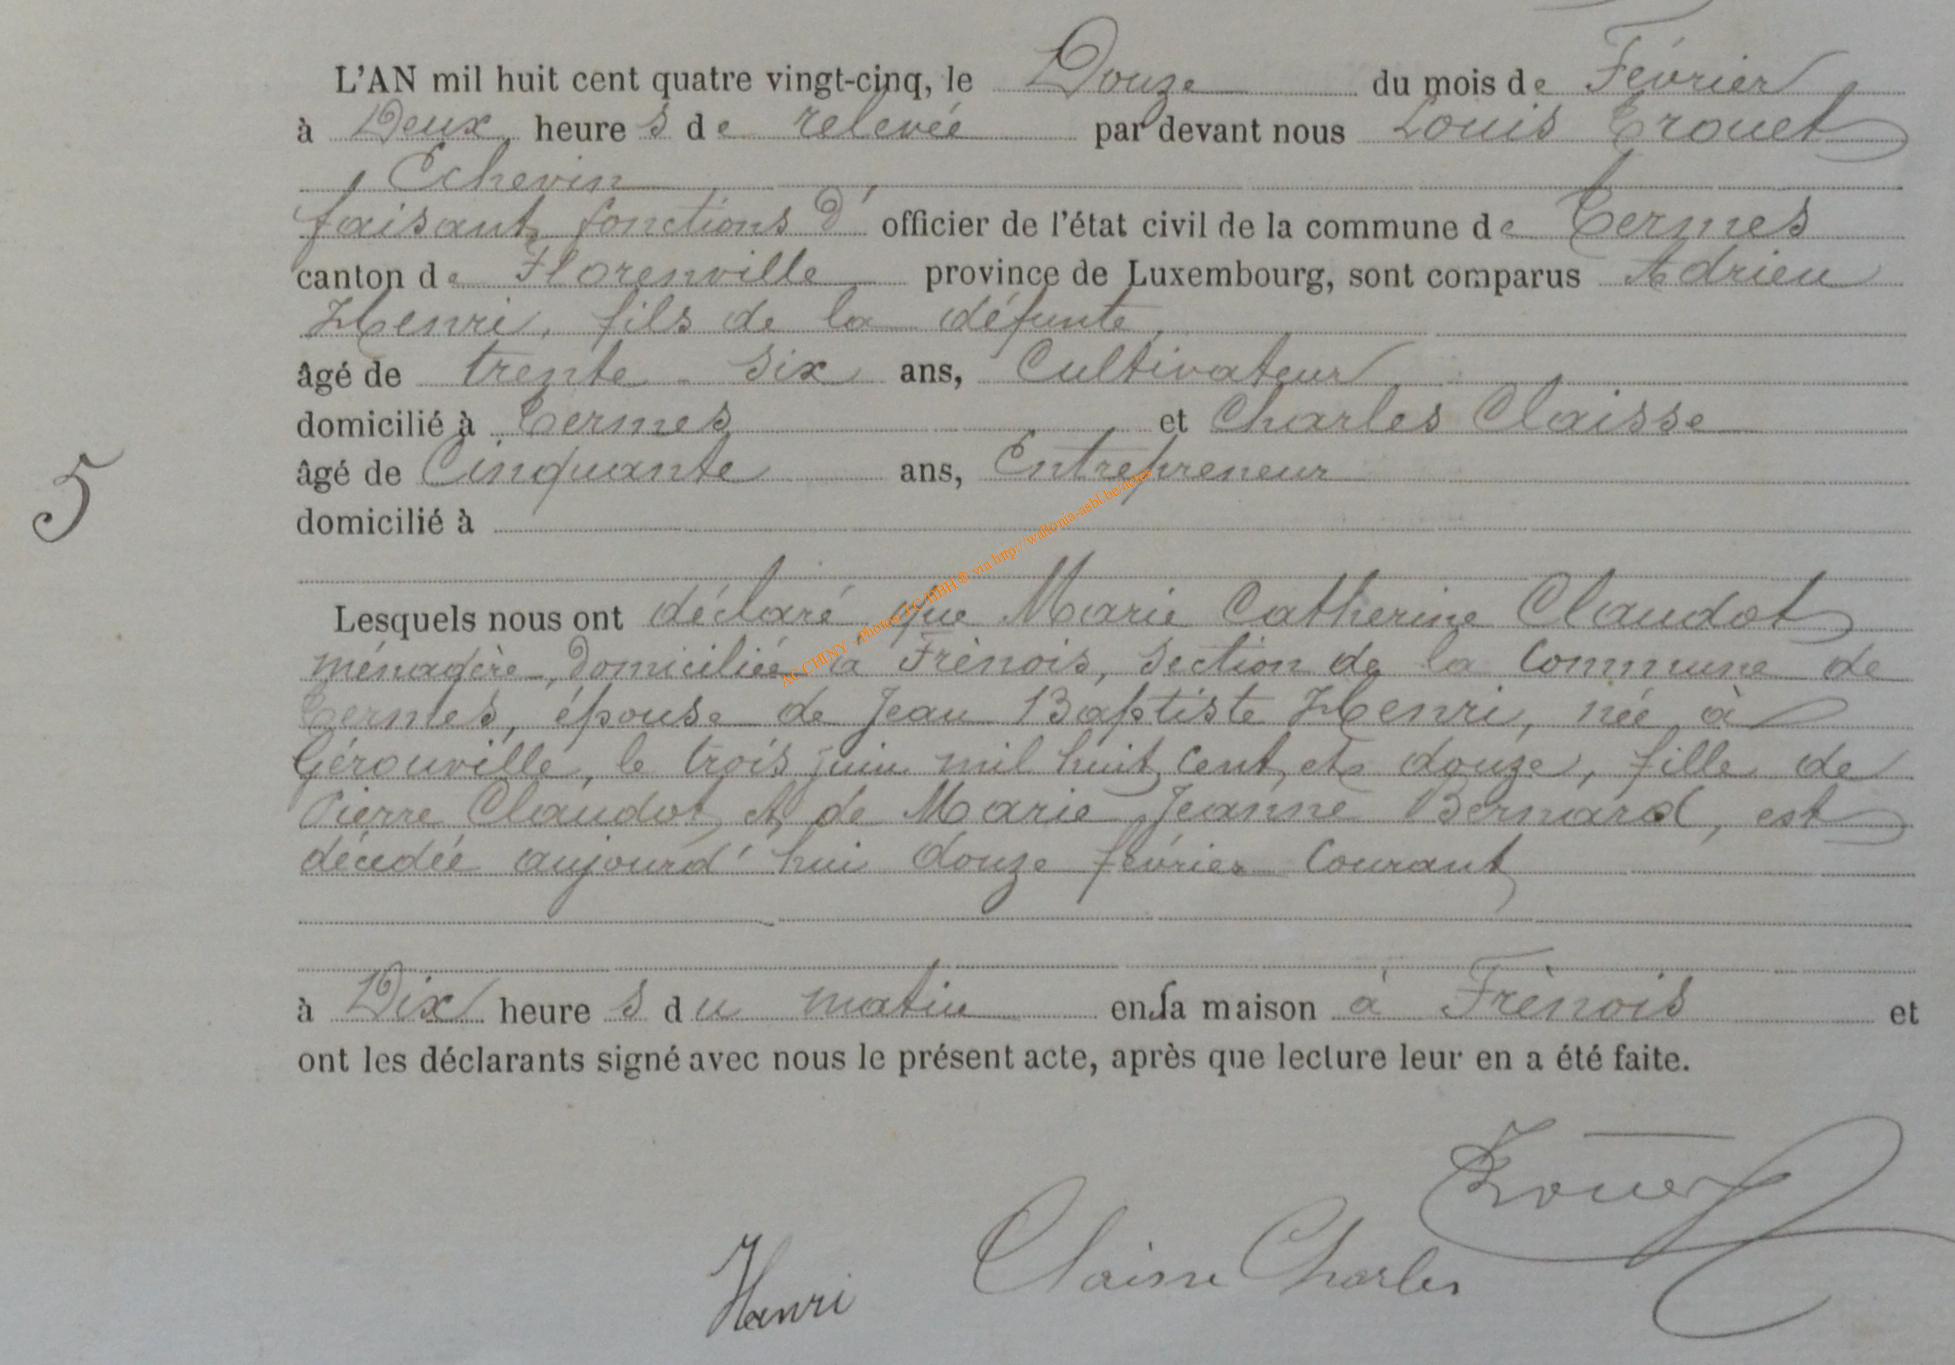 L'AN mil huit cent quatre vingt-cinq, le Douze du mois de Février
à Deux heures de relevée par devant nous Louis Trouet
Echevin
faisant fonctions d' officier de l'état civil de la commune de Termes
canton de Florenville province de Luxembourg, sont comparus Adrien
Henri, fils de la défunte,
âgé de trente-six ans, Cultivateur
domicilié à Termes et Charles Claisse
âgé de Cinquante ans, Entrepreneur
domicilié à
5
Lesquels nous ont déclaré que Marie Catherine Claudot
ménagère, domiciliée à Frènois, section de la Commune de
Termes, épouse de Jean Baptiste Henri, née à
Gérouville, le trois juin mil huit cent et douze, fille de
Pierre Claudot et de Marie Jeanne Bernard, est
décédée aujourd'hui douze février Courant
à Dix heures du matin en sa maison à Frènois et
ont les déclarants signé avec nous le présent acte, après que lecture leur en a été faite.
Trouet
Henri Claisse Charles
AC CHINY - Photos TC-BBH ® via http://wallonia-asbl.be/actes